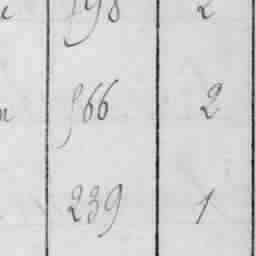 198 2
566 2
239 1